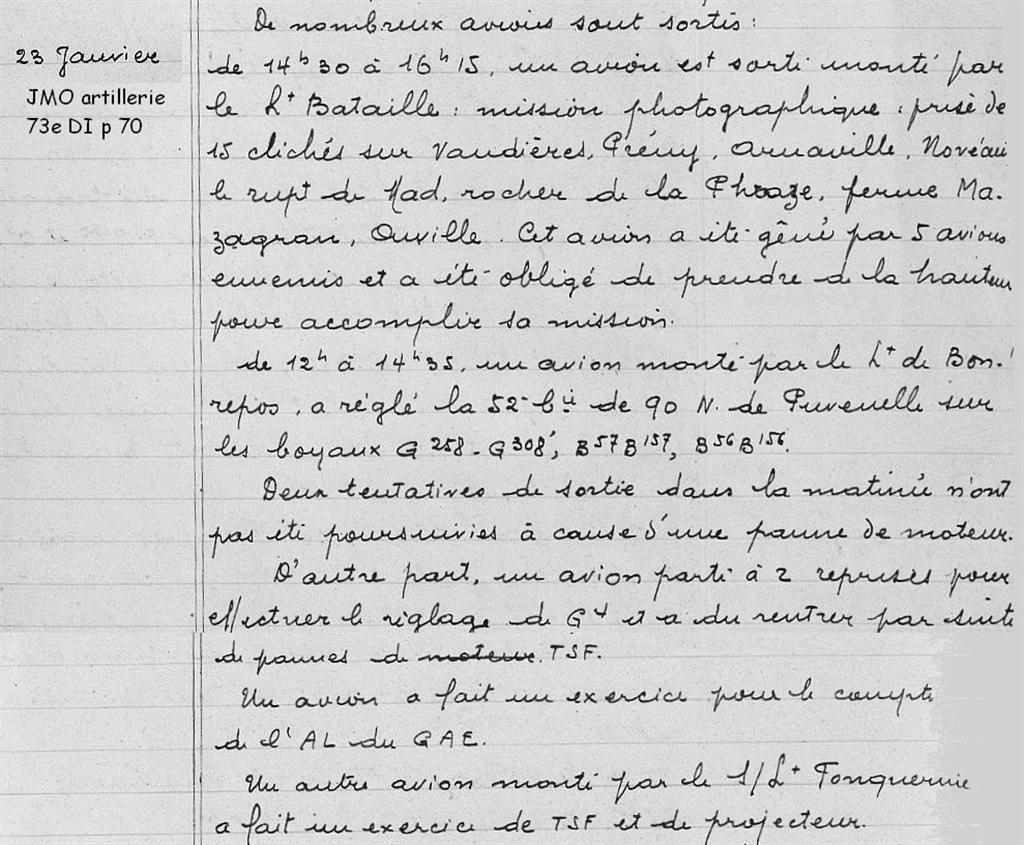 De nombreux avions sont sortis :
23 Janvier
JMO artillerie
73e DI p 70
de 14h30 à 16h15, un avion est sorti monté par
le Lt Bataille : mission photographique : prise de
15 clichés sur Vandières, Prény, Arnaville, Novéan
le rupt de Mad, rocher de la Phraze, ferme Ma-
zagran, Onville. Cet avion a été gêné par 5 avions
ennemis et a été obligé de prendre de la hauteur
pour accomplir sa mission.
de 12h à 14h35, un avion monté par le Lt de Bon-
repos, a réglé la 52e bie de 90 N. de Puvenelle sur
les boyaux G258 - G308', B57B157, B56B156.
Deux tentatives de sortie dans la matinée n'ont
pas été poursuivies à cause d'une panne de moteur.
D'autre part, un avion parti à 2 reprises pour
effectuer le réglage de G4 et a du rentrer par suite
de pannes de moteur. TSF.
Un avion a fait un exercice pour le compte
de l'AL du GAE.
Un autre avion monté par le S/Lt Fonquernie
a fait un exercice de TSF et de projecteur.